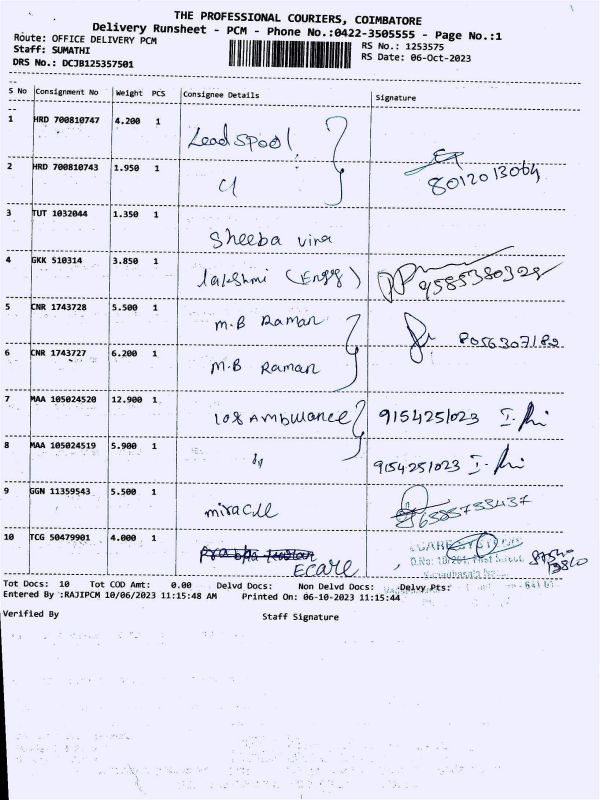 THE PROFESSIONAL COURIERS, COIMBATORE
Delivery Runsheet - PCM - Phone No.:0422-3505555 - Page No.:1
Route: OFFICE DELIVERY PCM
Staff: SUMATHI
DRS No.: DCJB125357501
RS No.: 1253575
RS Date: 06-Oct-2023
S No Consignment No Weight PCS Consignee Details Signature
1 HRD 700810747 4.200 1 Leadspool
2 HRD 700810743 1.950 1 8012013064
3 TUT 1032044 1.350 1 Sheeba vina
4 GKK 510314 3.850 1 lakshmi (Engg) 9585380328
5 CNR 1743728 5.500 1 M.B Raman 8056307182
6 CNR 1743727 6.200 1 M.B Raman
7 MAA 105024520 12.900 1 108 Ambulance 9154251023
8 MAA 105024519 5.900 1 9154251023
9 GGN 11359543 5.500 1 miracle 6385753437
10 TCG 50479901 4.000 1 Ecare
Tot Docs: 10 Tot COD Amt: 0.00 Delvd Docs: Non Delvd Docs: Delvy Pts:
Entered By :RAJIPCM 10/06/2023 11:15:48 AM Printed On: 06-10-2023 11:15:44
Verified By Staff Signature